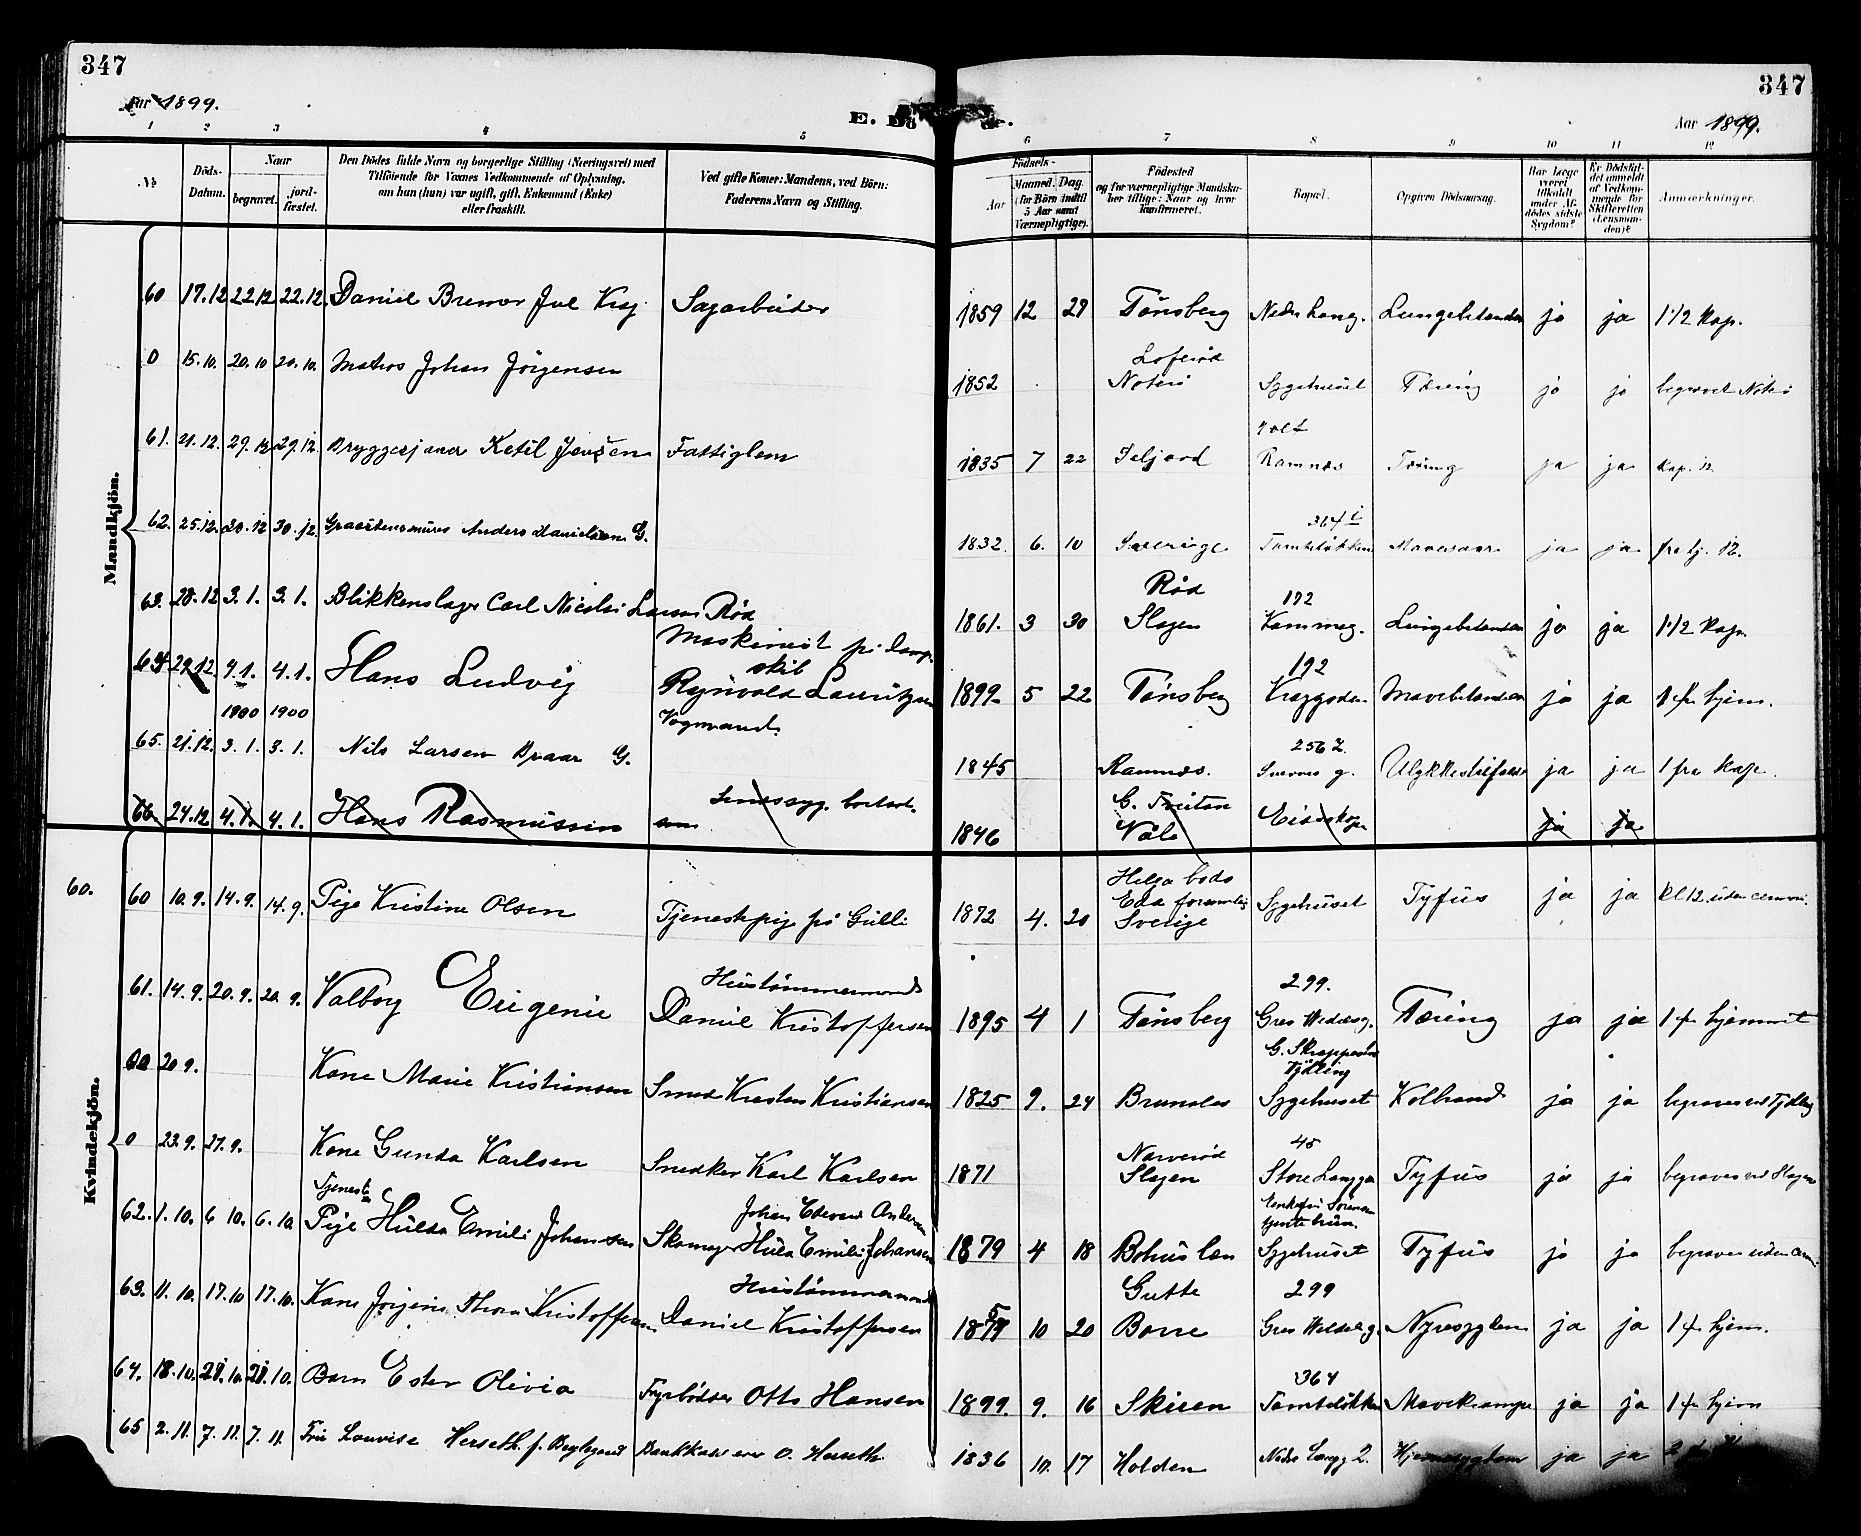 347
347
Aar 1899.
E. Dö
Aar 1899.
1 2 3 4 5 6 7 8 9 10 11 12
№
Döds-Datum.
Naar
begravet.
jord-fæstet.
Den Dödes fulde Navn og borgerlige Stilling (Næringsvei) med
Tilföiende for Voxnes Vedkommende af Oplysning,
om han (hun) var ugift, gift, Enkemand (Enke)
eller fraskilt.
Ved gifte Koner: Mandens, ved Börn:
Faderens Navn og Stilling.
Födsels-
Aar
Maaned. Dag.
(for Börn indtil
5 Aar samt
Værnepligtige).
Födested
og for værnepligtige Mandska-
ber tillige: Naar og hvor
konfirmeret.
Bopæl.
Opgiven Dödsaarsag.
Har Læge
været
tilkaldt
under Af-
dödes sidste
Sygdom?
Er Dödsfal-
det anmeldt
af Vedkom-
mende for
Skifteretten
(Lensman-
den)?
Anmærkninger.
Mandkjön.
60 17.12 22.12 22.12. Daniel Bremer Jul Krog Sagarbeider 1859 12 29 Tönsberg Nedre Lang. Lungebetændelse ja ja 1 1/2 Kap.
0 15.10. 20.10 20.10. Matros Johan Jörgensen 1852 Noterö Sygehuset Tæring ja ja begravet Nöterö
61. 21.12. 29.12 29.12. Bryggesjauer Ketil Jensen Fattiglem 1835 7 22 Seljord Ramnes Tæring ja ja Kap. 12
62. 25.12. 30.12 30.12. Graastensmurer Anders Danielsen G. 1832. 6. 10 Sverige 364 i Tomteløkken Mavesaar ja ja
63. 28.12 3.1. 3.1. Blikkenslager Carl Nicolai Larsen Rød 1861. 3 30 Rød Slagen 172 Kammeg. Lungebetændelse ja ja 1 1/2 Kap.
64 29.12. 4.1. 4.1. Hans Ludvig Maskinist på Damp-
skib
Reinvald Lauritzen 1899 5 22 Tönsberg 192 Kroggaden Mavebetændelse ja ja 1 fr hjem.
1900 1900
65. 21.12. 3.1. 3.1. Nils Larsen Braar G. Vognmand. 1845 Ramnæs. 256 Z. Ulykkestilfælde ja ja 1 fra Kap.
66. 24.12 4.1. 4.1. Hans Rasmussen Sindssyg 1846 Våle ja ja
Kvindekjön.
60. 60 10.9. 14.9. 14.9. Pige Kristine Olsen Tjenestepige på Gulli 1872 4. 20 Helga bods
Eda forsamling
Sverige Sygehuset Tyfus ja ja Kl 12 uden cermoni.
61. 14.9. 20.9. 20.9. Valborg Eugenie Hustömmermand
Daniel Kristoffersen 1895 4 1 Tönsberg 299. Gres Wedelsg. Tæring ja ja 1 fr hjemmet
20.9. Kone Marie Kristiansen Smed Kresten Kristiansen 1825 9. 24 Brunlæs Tjölling
Sygehuset Kolbrand ja ja begraves ved Tjölling
0 23.9. 27.9. Kone Gunda Karlsen Snedker Karl Karlsen 1871 Narverød
Slagen 45
Store Langga Tyfus ja ja begraves ved Slagen
62. 1.10. 6.10. 6.10 Tjeneste
Pige Hulda Emilie Johansen Johan Edvard Andersen
Skomager Hulda Emilie Johansen 1879 4 18 Bohuslen Sygehuset Tyfus ja ja begraves uden cerm.
63. 11.10. 17.10 17.10. Kone Jörgine Thora Kristoffersen Hustömmermand
Daniel Kristoffersen 1857 10 20 Gutte
Borre 299
Gres Wedelsg. Nyresygdom ja ja 1 fr hjem.
64. 18.10. 21.10. 21.10. Barn Ester Olivia Fyrböder Otto Hansen 1899. 9. 16 Skieen 364
Tomteløkken Mavekrampe ja ja 1 fr hjem
65 2.11. 7.11. 7.11. Fru Louvise Herseth f. Bankkasserer O. Herseth 1836 10. 17 Holden Nedre Langg 2. Hjernesygdom ja ja